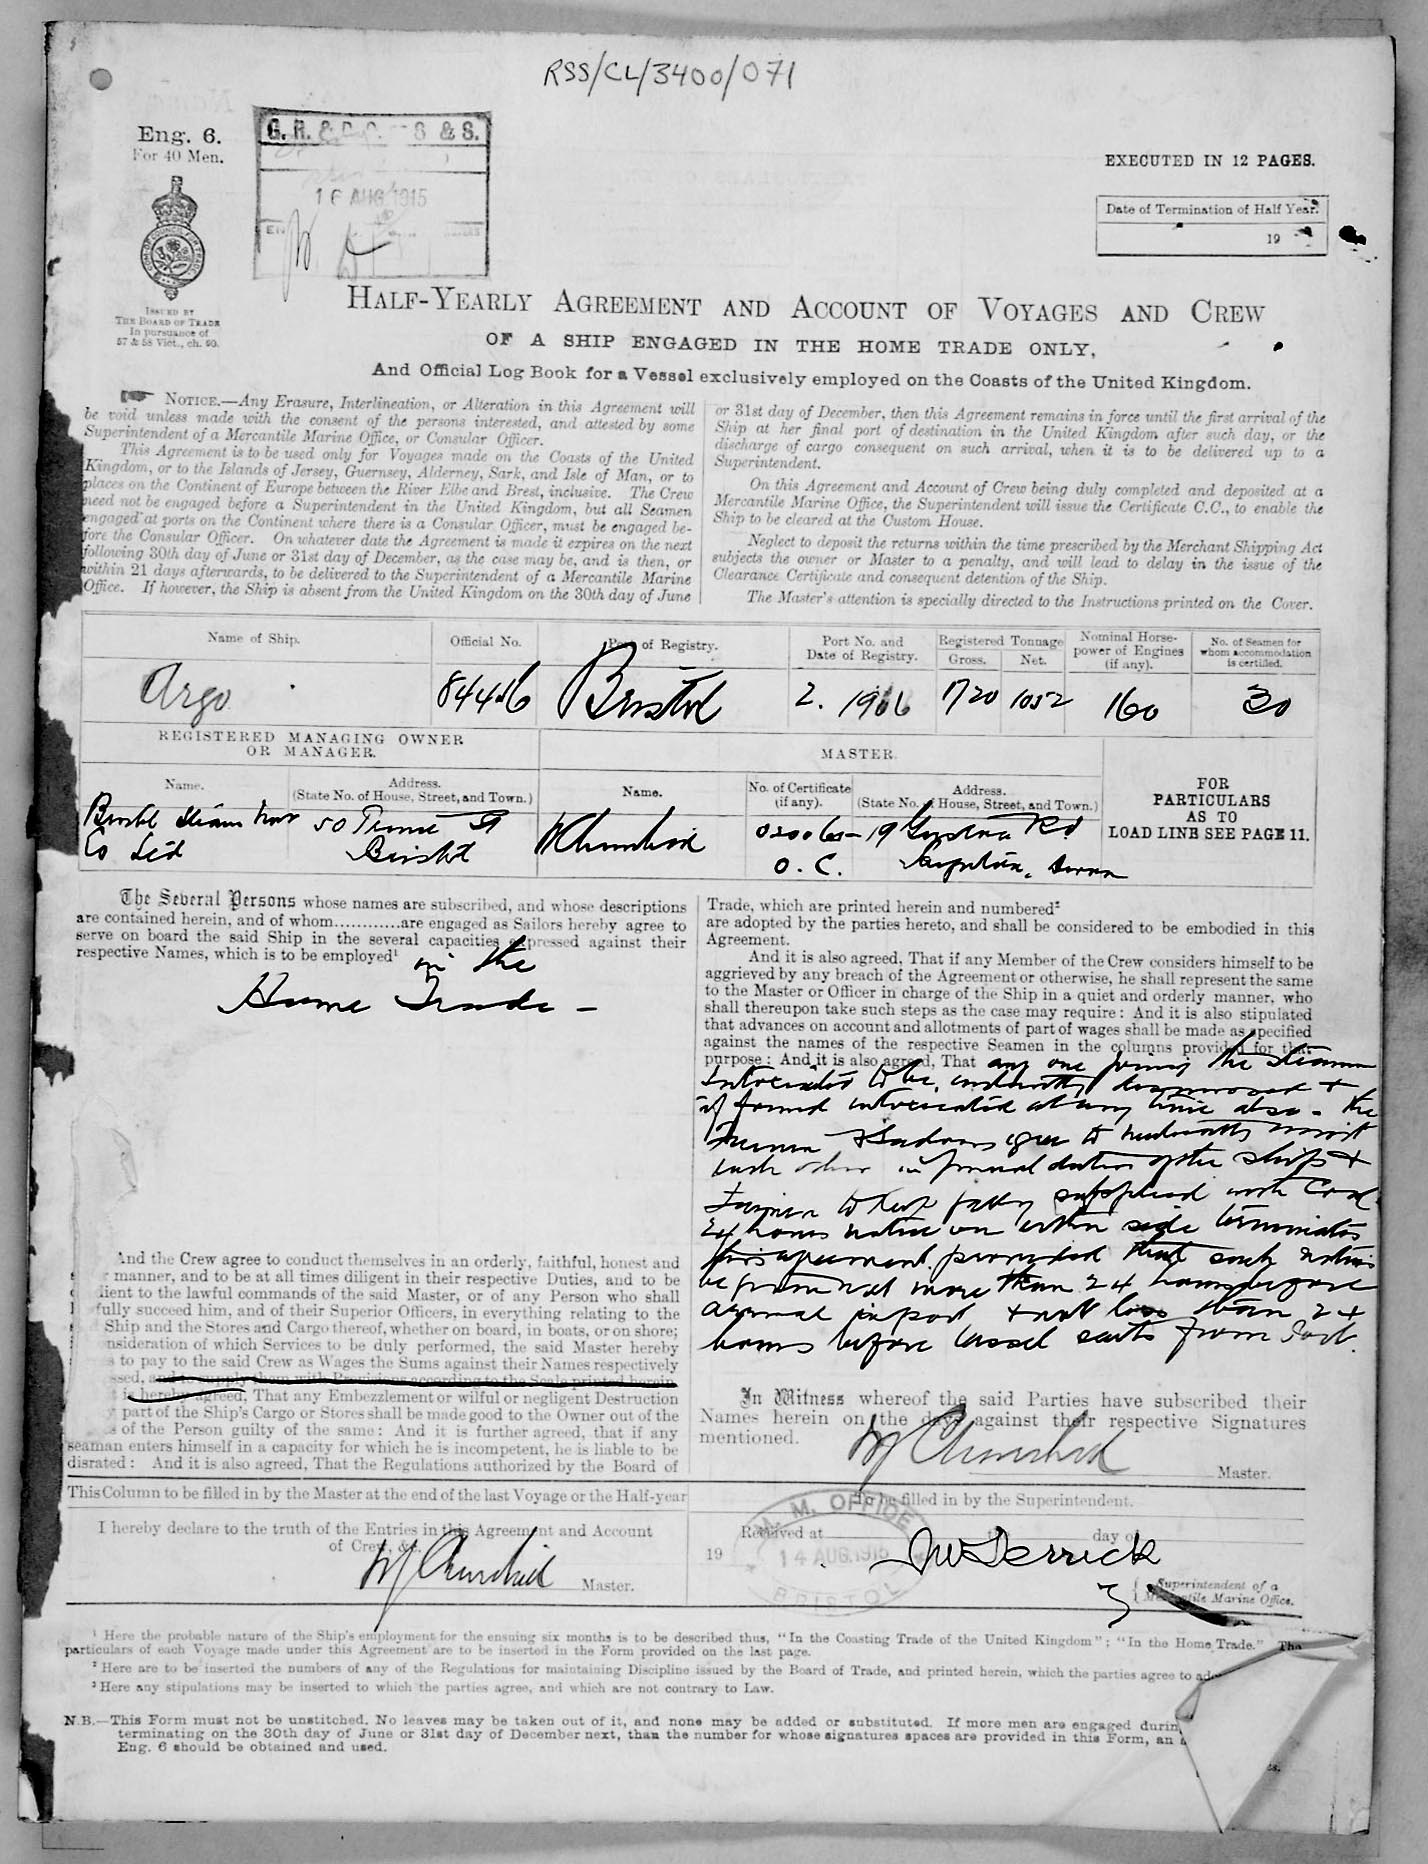 RSS/CL/3400/071
Eng. 6.
For 40 Men.
G. R. & S & S.
16 AUG 1915
EXECUTED IN 12 PAGES.
Date of Termination of Half Year.
19
ISSUED BY
THE BOARD OF TRADE
In pursuance of
57 & 58 Vict., ch. 60.
HALF-YEARLY AGREEMENT AND ACCOUNT OF VOYAGES AND CREW
OF A SHIP ENGAGED IN THE HOME TRADE ONLY,
And Official Log Book for a Vessel exclusively employed on the Coasts of the United Kingdom.
NOTICE.—Any Erasure, Interlineation, or Alteration in this Agreement will
be void unless made with the consent of the persons interested, and attested by some
Superintendent of a Mercantile Marine Office, or Consular Officer.
This Agreement is to be used only for Voyages made on the Coasts of the United
Kingdom, or to the Islands of Jersey, Guernsey, Alderney, Sark, and Isle of Man, or to
places on the Continent of Europe between the River Elbe and Brest, inclusive. The Crew
need not be engaged before a Superintendent in the United Kingdom, but all Seamen
engaged at ports on the Continent where there is a Consular Officer, must be engaged be-
fore the Consular Officer. On whatever date the Agreement is made it expires on the next
following 30th day of June or 31st day of December, as the case may be, and is then, or
within 21 days afterwards, to be delivered to the Superintendent of a Mercantile Marine
Office. If however, the Ship is absent from the United Kingdom on the 30th day of June
or 31st day of December, then this Agreement remains in force until the first arrival of the
Ship at her final port of destination in the United Kingdom after such day, or the
discharge of cargo consequent on such arrival, when it is to be delivered up to a
Superintendent.
On this Agreement and Account of Crew being duly completed and deposited at a
Mercantile Marine Office, the Superintendent will issue the Certificate C.C., to enable the
Ship to be cleared at the Custom House.
Neglect to deposit the returns within the time prescribed by the Merchant Shipping Act
subjects the owner or Master to a penalty, and will lead to delay in the issue of the
Clearance Certificate and consequent detention of the Ship.
The Master's attention is specially directed to the Instructions printed on the Cover.
Name of Ship. Official No. Port of Registry. Port No. and Date of Registry. Registered Tonnage Gross. Net. Nominal Horse-power of Engines (if any). No. of Seamen for whom accommodation is certified.
Argo 84446 Bristol 2. 1906 1720 1052 160 30
REGISTERED MANAGING OWNER
OR MANAGER.
MASTER.
Name. Address. (State No. of House, Street, and Town.) Name. No. of Certificate (if any). Address. (State No. of House, Street, and Town.)
FOR
PARTICULARS
AS TO
LOAD LINE SEE PAGE 11.
Bristol Steam Nav 50 St W Churchill 020060 19 Rd
Co Ltd Bristol O. C. Devon
The Several Persons whose names are subscribed, and whose descriptions
are contained herein, and of whom............are engaged as Sailors hereby agree to
serve on board the said Ship in the several capacities expressed against their
respective Names, which is to be employed¹ in the
Home Trade –
And the Crew agree to conduct themselves in an orderly, faithful, honest and
manner, and to be at all times diligent in their respective Duties, and to be
dient to the lawful commands of the said Master, or of any Person who shall
fully succeed him, and of their Superior Officers, in everything relating to the
Ship and the Stores and Cargo thereof, whether on board, in boats, or on shore;
nsideration of which Services to be duly performed, the said Master hereby
s to pay to the said Crew as Wages the Sums against their Names respectively
ssed, and to supply them with Provisions according to the Scale printed herein
is hereby agreed, That any Embezzlement or wilful or negligent Destruction
part of the Ship's Cargo or Stores shall be made good to the Owner out of the
s of the Person guilty of the same: And it is further agreed, that if any
seaman enters himself in a capacity for which he is incompetent, he is liable to be
disrated: And it is also agreed, That the Regulations authorized by the Board of
Trade, which are printed herein and numbered²
are adopted by the parties hereto, and shall be considered to be embodied in this
Agreement.
And it is also agreed, That if any Member of the Crew considers himself to be
aggrieved by any breach of the Agreement or otherwise, he shall represent the same
to the Master or Officer in charge of the Ship in a quiet and orderly manner, who
shall thereupon take such steps as the case may require: And it is also stipulated
that advances on account and allotments of part of wages shall be made as specified
against the names of the respective Seamen in the columns provided for that
purpose: And it is also agreed, That any one joining the Steamer
intoxicated to be instantly dismissed +
if found intoxicated at any time also – the
Firemen & Sailors agree to mutually assist
each other in general duties of the ship +
Firemen to keep galley supplied with Coal.
24 hours notice on either side terminates
this agreement provided that such notice
be given not more than 24 hours before
arrival in port + not less than 24
hours before vessel sails from Port.
In Witness whereof the said Parties have subscribed their
Names herein on the days against their respective Signatures
mentioned.
W Churchill Master.
This Column to be filled in by the Master at the end of the last Voyage or the Half-year
I hereby declare to the truth of the Entries in this Agreement and Account
of Crew, &c.
W Churchill Master.
To be filled in by the Superintendent.
Received at the day of
19
M. M. OFFICE
14 AUG. 1915
BRISTOL
JW Derrick
Superintendent of a
Mercantile Marine Office.
¹ Here the probable nature of the Ship's employment for the ensuing six months is to be described thus, "In the Coasting Trade of the United Kingdom"; "In the Home Trade." The
particulars of each Voyage made under this Agreement are to be inserted in the Form provided on the last page.
² Here are to be inserted the numbers of any of the Regulations for maintaining Discipline issued by the Board of Trade, and printed herein, which the parties agree to ado
³ Here any stipulations may be inserted to which the parties agree, and which are not contrary to Law.
N.B.—This Form must not be unstitched. No leaves may be taken out of it, and none may be added or substituted. If more men are engaged durin
terminating on the 30th day of June or 31st day of December next, than the number for whose signatures spaces are provided in this Form, an
Eng. 6 should be obtained and used.